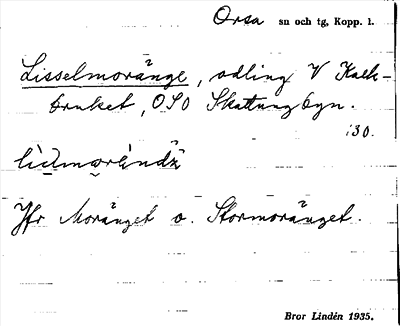 Orsa sn och tg, Kopp. l.
Lisselmoränge, odling V Kalk-
bruket, OSO Skattungbyn.
i30.
Jfr Moränget o. Stormoränget.
Bror Lindén 1935.